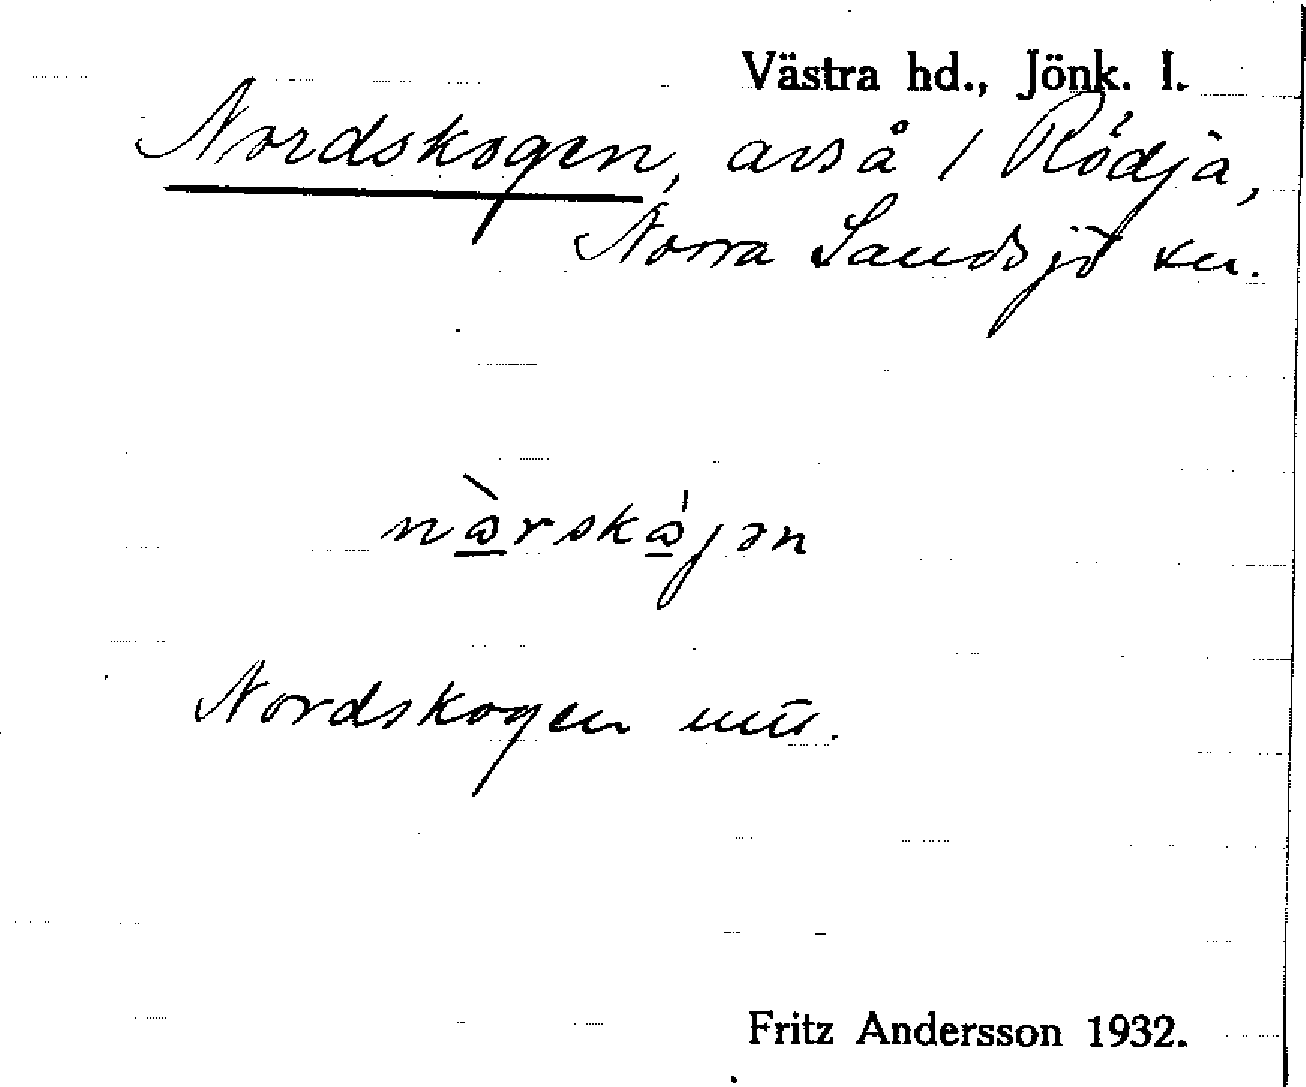 Västra hd., Jönk. l.
Nordskogen, avs å / Rödja,
Norra Sandsjö sn.
nàrskájən
Nordskogen
Fritz Andersson 1932.